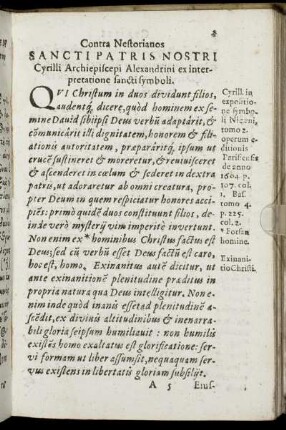 Contra Nestorianos
SANCTI PATRIS NOSTRI
Cyrilli Archiepiscopi Alexandrini ex inter-
pretatione sancti symboli.
QVI Christum in duos dividunt filios,
audentq́; dicere, quòd hominem ex se-
mine David sibiipsi Deus verbũ adaptârit, &
cõmunicârit illi dignitatem, honorem & fili-
ationis autoritatem, præparâritq́; ipsum ut
crucẽ sustineret & moreretur, & reviviseret
& ascenderet in cœlum & sederet in dextra
patris, ut adoraretur ab omni creatura, pro-
pter Deum in quem respiciatur honores acci-
piẽs: primò quidẽ duos constituunt filios, de-
inde verò mysterij vim imperitè invertunt.
Non enim ex* hominibus Christus factus est
Deus; sed cũ verbũ esset Deus factũ est caro,
hoc est, homo, Exinanitus autẽ dicitur, ut
ante exinanitionẽ plenitudine præditus in
propria natura qua Deus intelligitur. Non e-
nim inde quòd inanis esset ad plenitudinẽ a-
scẽdit, ex divinis altitudinibus & inenarra-
bili gloria seipsum humiliavit: non humilis
existẽs homo exaltatus est glorificatione: ser-
vi formam ut liber assumsit, nequaquam ser-
vus existens in libertatis gloriam subsilijt.
A 5 Eius-
Cyrill. in
expositio-
ne symbo
li Niceni,
tomo 2.
operum e-
ditionis
de anno
1604. p.
107. col.
1. Bas.
tomo 4.
p. 225.
col. 2.
* Forsan
homine.
Exinani-
tio Christi.